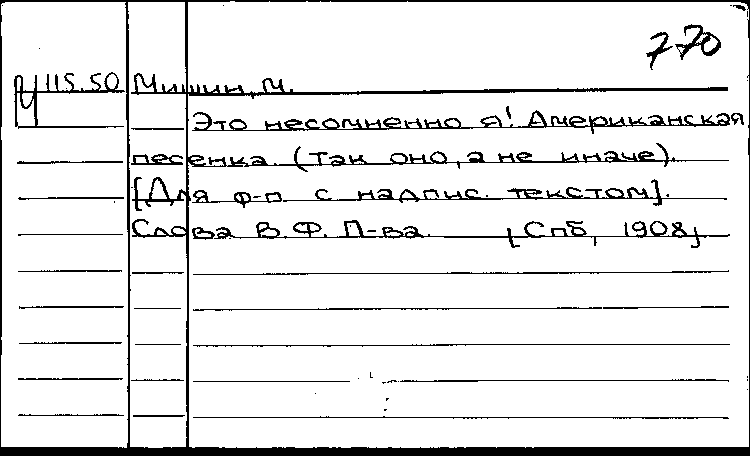 770
У 115.50 Мишин, М.
Это несомненно я! Американская
песенка. (Так оно, а не иначе).
[Для ф-п. с надпис. текстом].
Слова В.Ф. П-ва. [Спб, 1908]